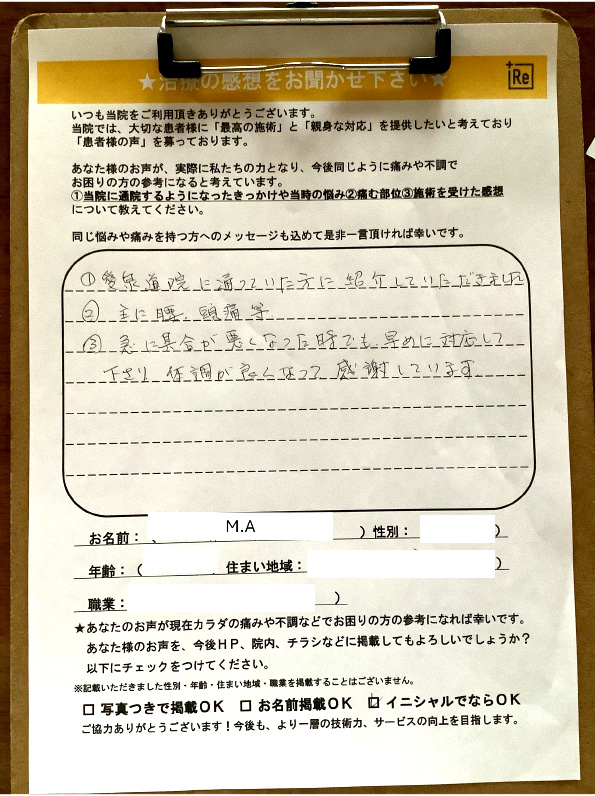 ★治療の感想をお聞かせ下さい★
+Re
いつも当院をご利用頂きありがとうございます。
当院では、大切な患者様に「最高の施術」と「親身な対応」を提供したいと考えており
「患者様の声」を募っております。
あなた様のお声が、実際に私たちの力となり、今後同じように痛みや不調で
お困りの方の参考になると考えています。
①当院に通院するようになったきっかけや当時の悩み②痛む部位③施術を受けた感想
について教えてください。
同じ悩みや痛みを持つ方へのメッセージも込めて是非一言頂ければ幸いです。
① 院に通っていた方に紹介していただきました
② 主に腰、頭痛等
③ 急に具合が悪くなった時でも早めに対応して
下さり 体調が良くなって感謝しています
お名前： M.A ） 性別： ）
年齢：（ 住まい地域： ）
職業： ）
★あなたのお声が現在カラダの痛みや不調などでお困りの方の参考になれば幸いです。
あなた様のお声を、今後ＨＰ、院内、チラシなどに掲載してもよろしいでしょうか？
以下にチェックをつけてください。
※記載いただきました性別・年齢・住まい地域・職業を掲載することはございません。
□ 写真つきで掲載ＯＫ □ お名前掲載ＯＫ ☑ イニシャルでならＯＫ
ご協力ありがとうございます！今後も、より一層の技術力、サービスの向上を目指します。